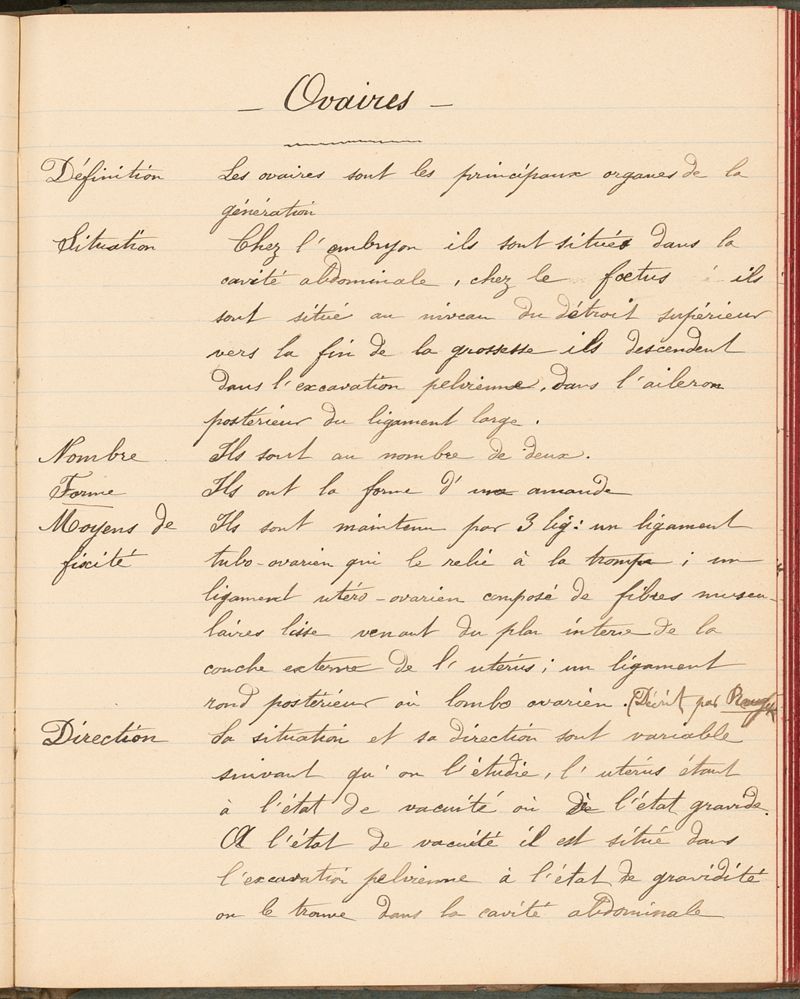 — Ovaires —
Définition Les ovaires sont les principaux organes de la
génération
Situation Chez l'embryon ils sont situés dans la
cavité abdominale, chez le foetus ils
sont situé au niveau du détroit supérieur
vers la fin de la grossesse ils descendent
dans l'excavation pelvienne, dans l'aileron
postérieur du ligament large.
Nombre Ils sont au nombre de deux.
Forme Ils ont la forme d'une amande
Moyens de Ils sont maintenu par 3 lig: un ligament
fixité tubo-ovarien qui le relie à la trompe; un
ligament utéro-ovarien composé de fibres muscu-
laires lisse venant du plan interne de la
couche externe de l'utérus; un ligament
rond postérieur où lombo ovarien. (Décrit par
Direction La situation et sa direction sont variable
suivant qu'on l'étudie, l'utérus étant
à l'état de vacuité où de l'état gravide.
A l'état de vacuité il est situé dans
l'excavation pelvienne à l'état de gravidité
on le trouve dans la cavité abdominale